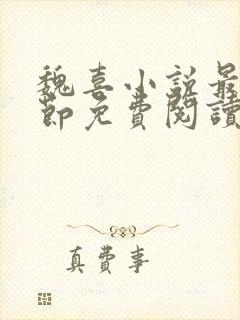 魏喜小説最
節免費閱讀
真費事